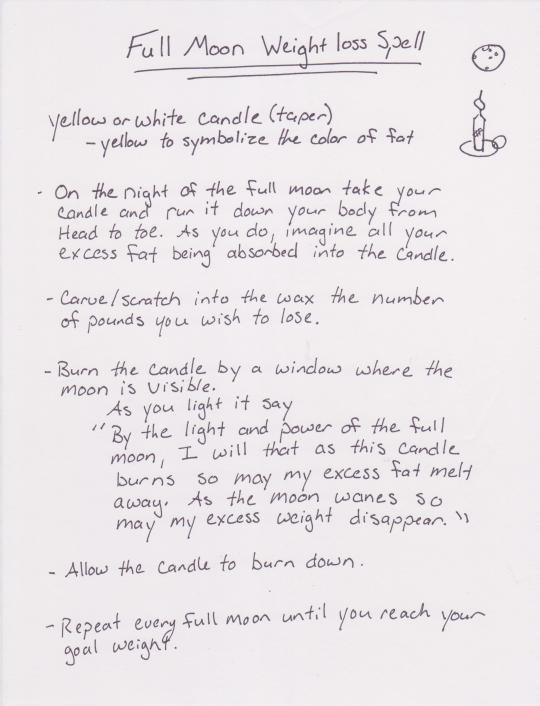 Full Moon Weight loss Spell
yellow or white candle (taper)
- yellow to symbolize the color of fat
- On the night of the full moon take your
candle and run it down your body from
Head to toe. As you do, imagine all your
excess fat being absorbed into the candle.
- Carve/scratch into the wax the number
of pounds you wish to lose.
- Burn the candle by a window where the
moon is visible.
As you light it say
"By the light and power of the full
moon, I will that as this candle
burns so may my excess fat melt
away. As the moon wanes so
may my excess weight disappear."
- Allow the candle to burn down.
- Repeat every full moon until you reach your
goal weight.